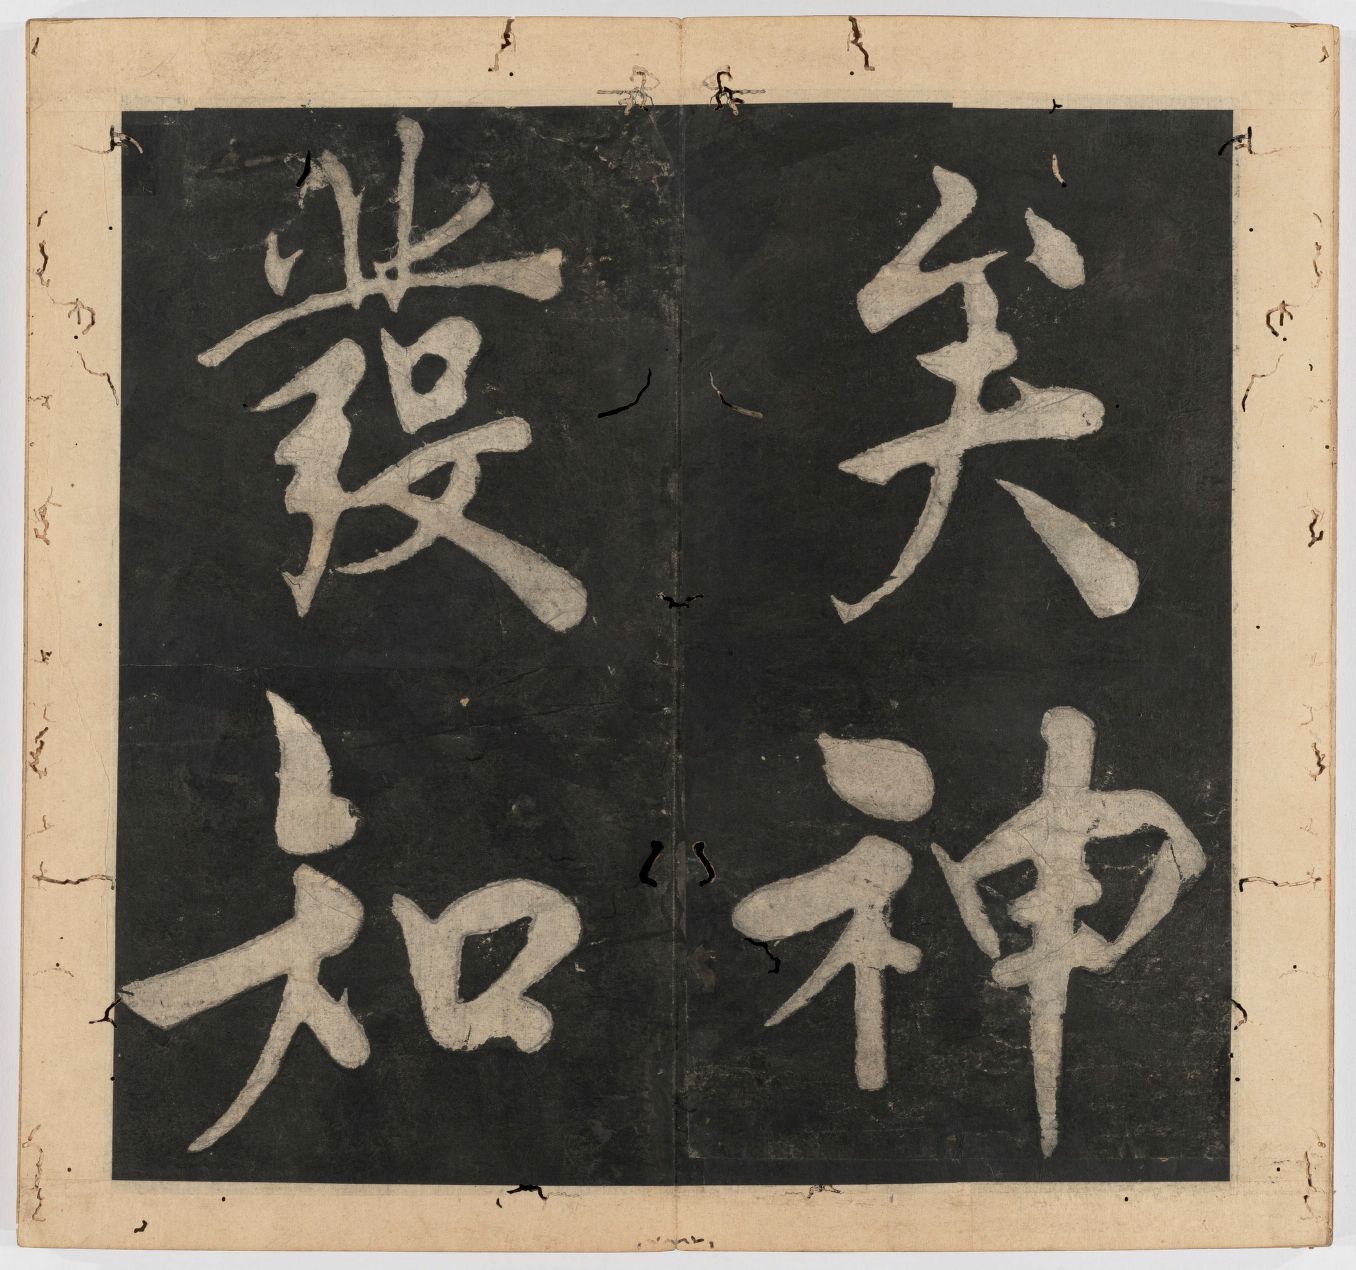 矣神
發知